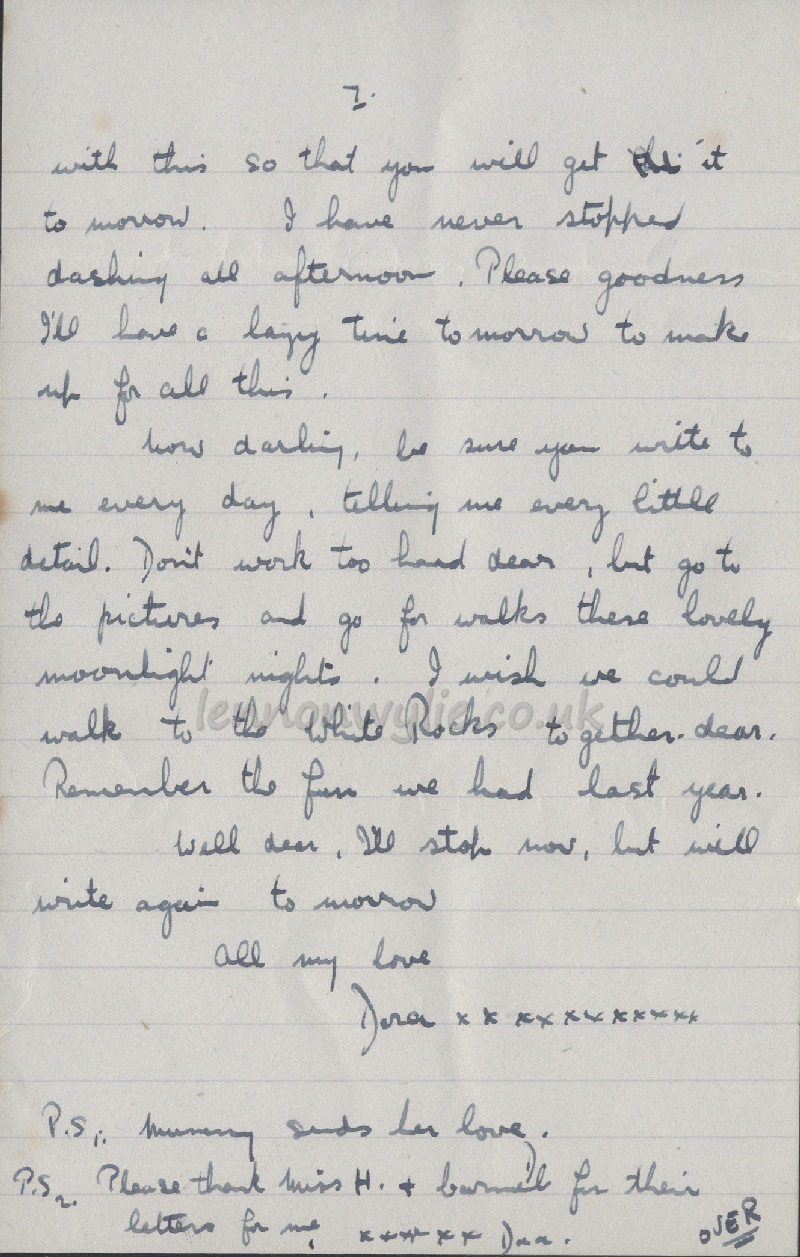 7.
with this so that you will get it
to morrow. I have never stopped
dashing all afternoon. Please goodness
I'll have a lazy time tomorrow to make
up for all this.
Now darling, be sure you write to
me every day, telling me every little
detail. Don't work too hard dear, but go to
the pictures and go for walks these lovely
moonlight nights. I wish we could
lennonwylie.co.uk
walk to the White Rocks together. dear.
Remember the fun we had last year.
Well dear, I'll stop now, but will
write again to morrow
All my love
Dora x x x x x x x x x x x x
P.S1. Mummy sends her love.
P.S2. Please thank Miss H. + for their
letters for me, x x x x x x
OVER